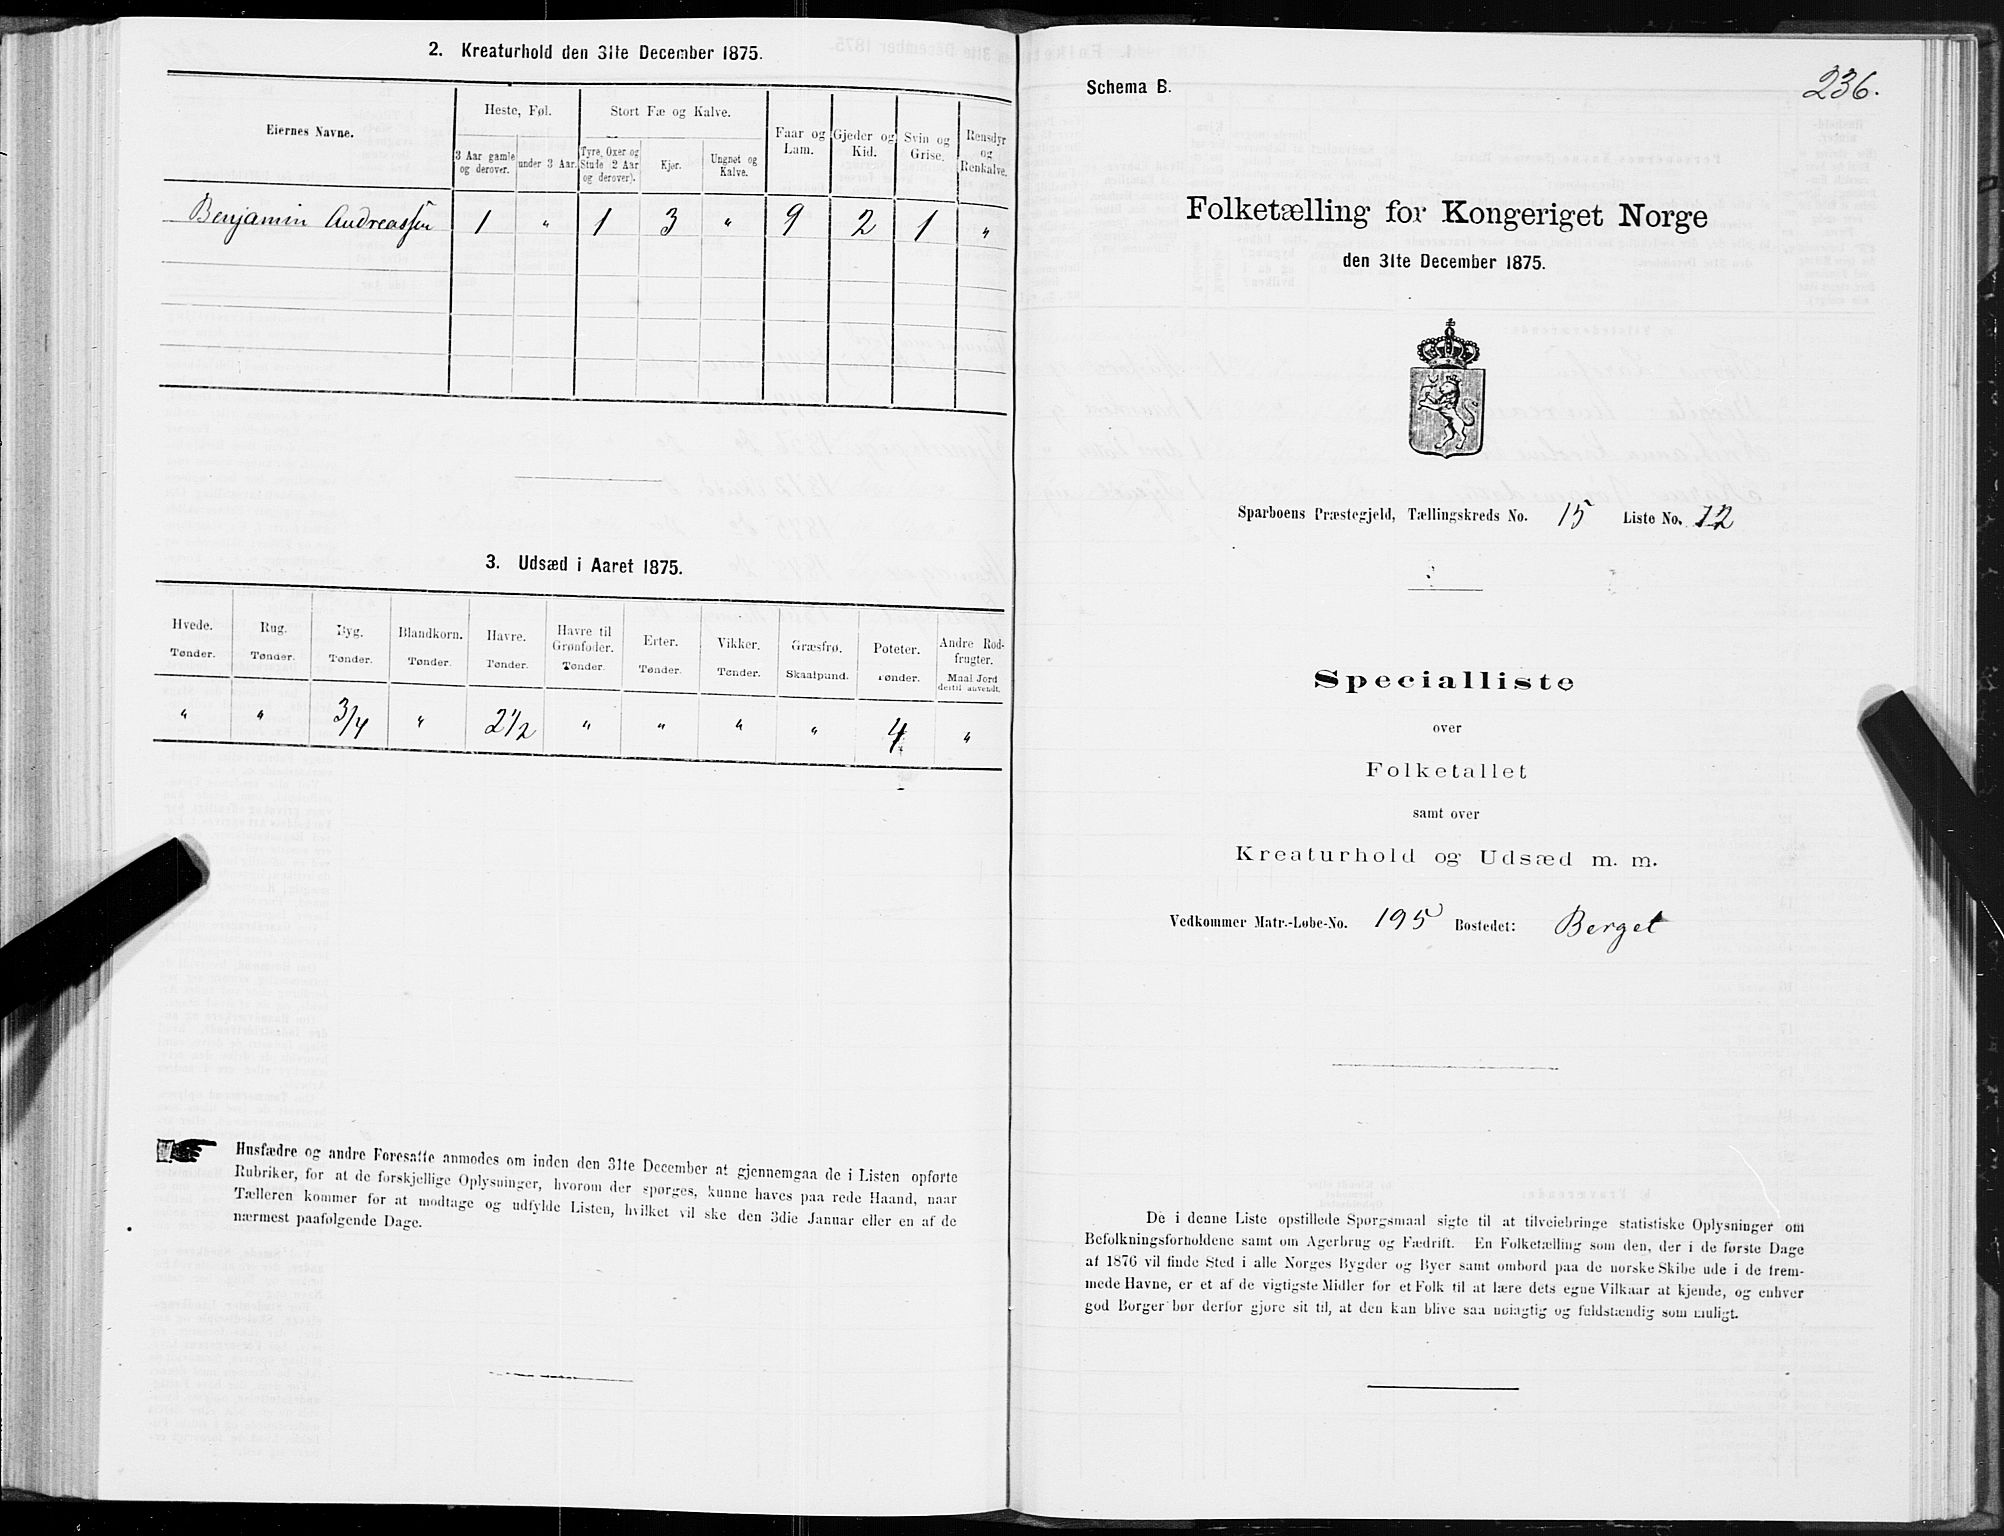 2. Kreaturhold den 31te December 1875.
Eiernes Navne.
Heste, Føl.
Stort Fæ og Kalve.
Faar og Lam.
Gjeder og Kid.
Svin og Grise.
Rensdyr og Renkalve.
3 Aar gamle og derover.
under 3 Aar.
Tyre, Oxer og Stude 2 Aar og derover).
Kjør.
Ungnøt og Kalve.
Benjamin Andreassen 1 " 1 3 " 9 2 1 "
3. Udsæd i Aaret 1875.
Hvede. Rug. Byg. Blandkorn. Havre. Havre til Grønfoder. Erter. Vikker. Græsfrø. Poteter. Andre Rodfrugter.
Tønder. Tønder. Tønder. Tønder. Tønder. Tønder. Tønder. Tønder. Skaalpund. Tønder. Maal Jord dertil anvendt.
" " 3/4 " 2 1/2 " " " " 4 "
Husfædre og andre Foresatte anmodes om inden den 31te December at gjennemgaa de i Listen opførte
Rubriker, for at de forskjellige Oplysninger, hvorom der spørges, kunne haves paa rede Haand, naar
Tælleren kommer for at modtage og udfylde Listen, hvilket vil ske den 3die Januar eller en af de
nærmest paafølgende Dage.
Schema B.
236.
Folketælling for Kongeriget Norge
den 31te December 1875.
Sparboens Præstegjeld, Tællingskreds No. 15 Liste No. 12
Specialliste
over
Folketallet
samt over
Kreaturhold og Udsæd m. m.
Vedkommer Matr.-Løbe-No. 195 Bostedet: Berget
De i denne Liste opstillede Spørgsmaal sigte til at tilveiebringe statistiske Oplysninger om
Befolkningsforholdene samt om Agerbrug og Fædrift. En Folketælling som den, der i de første Dage
af 1876 vil finde Sted i alle Norges Bygder og Byer samt ombord paa de norske Skibe ude i de frem-
mede Havne, er et af de vigtigste Midler for et Folk til at lære dets egne Vilkaar at kjende, og enhver
god Borger bør derfor gjøre sit til, at den kan blive saa nøiagtig og fuldstændig som muligt.